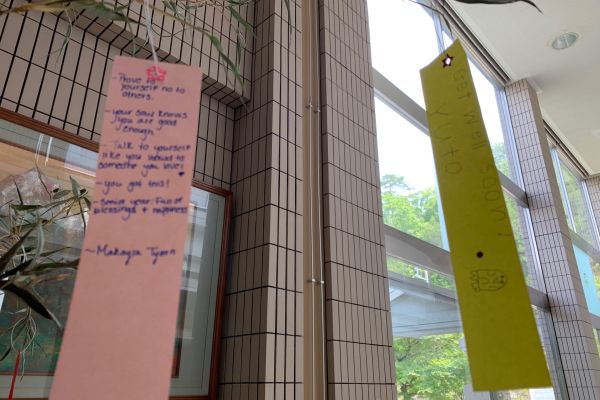 - Prove to
yourself no to
others.
- your soul knows
you are good
enough
- Talk to yourself
like you would to
someone you love.
- you got this!
- Senior year: Full of
blessings + happiness
~ Makayla
Get well soon!
Yuto